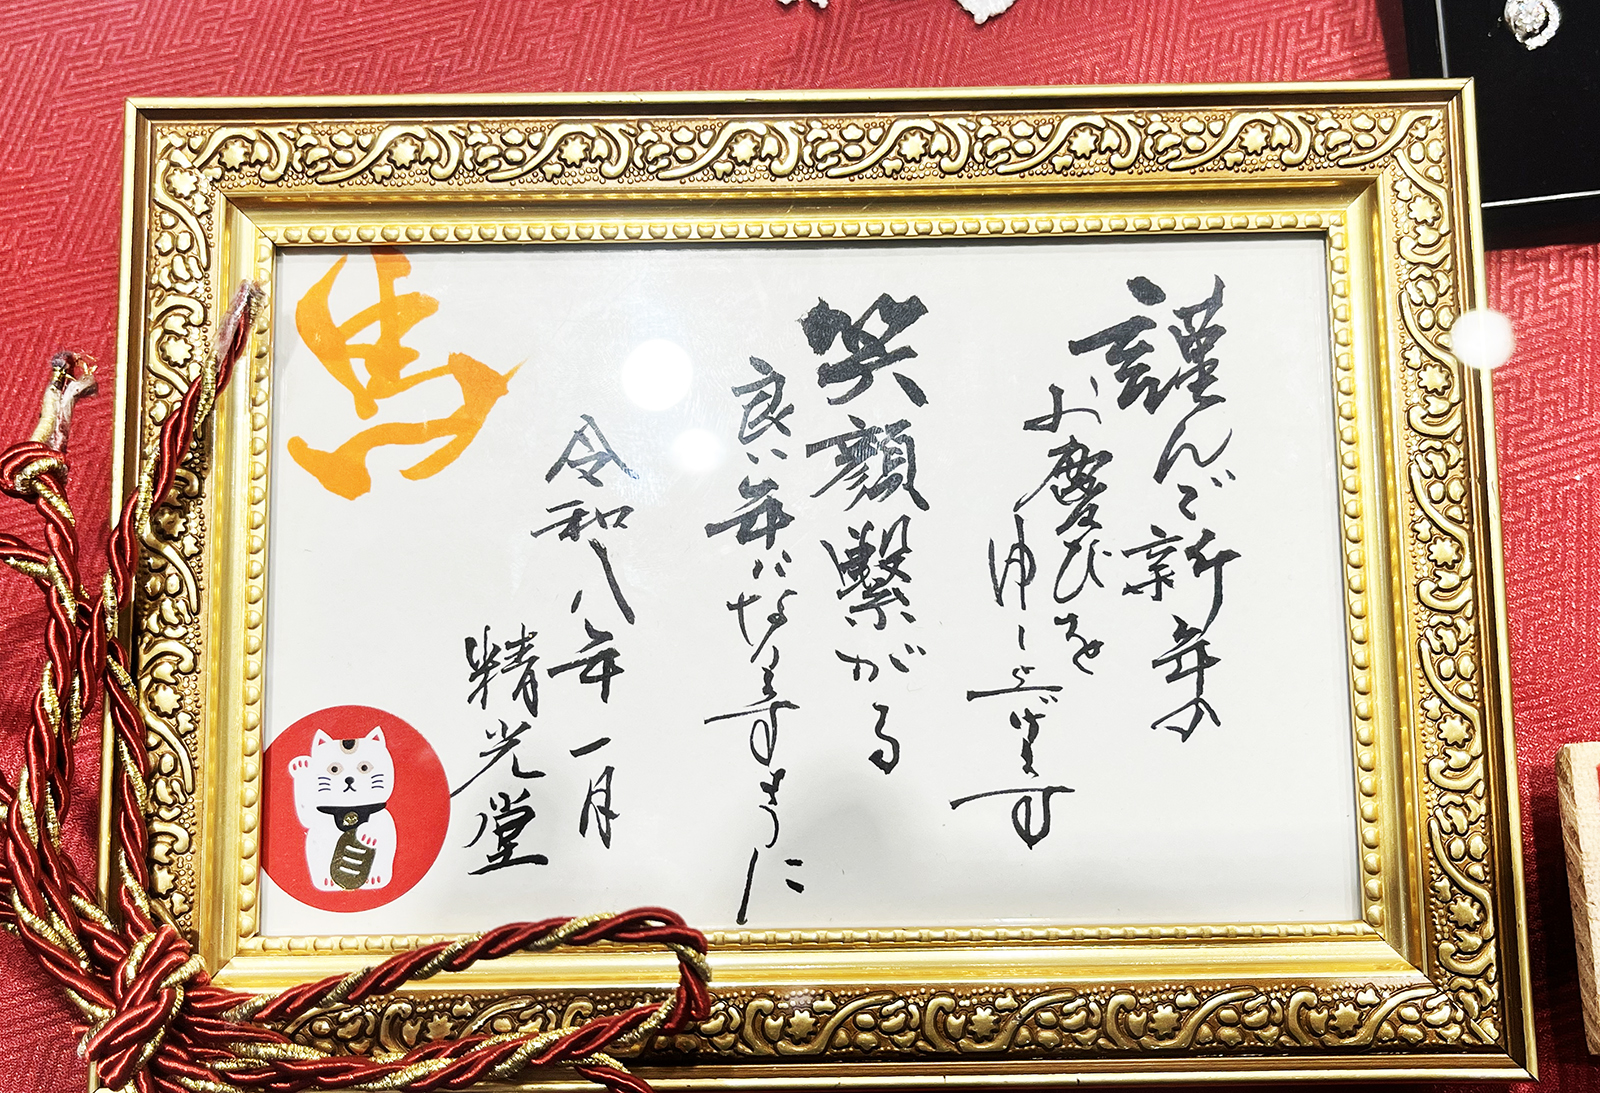 謹んで新年の
お慶びを
申し上げます
笑顔繋がる
良い年になりますように
令和八年一月
精光堂
馬